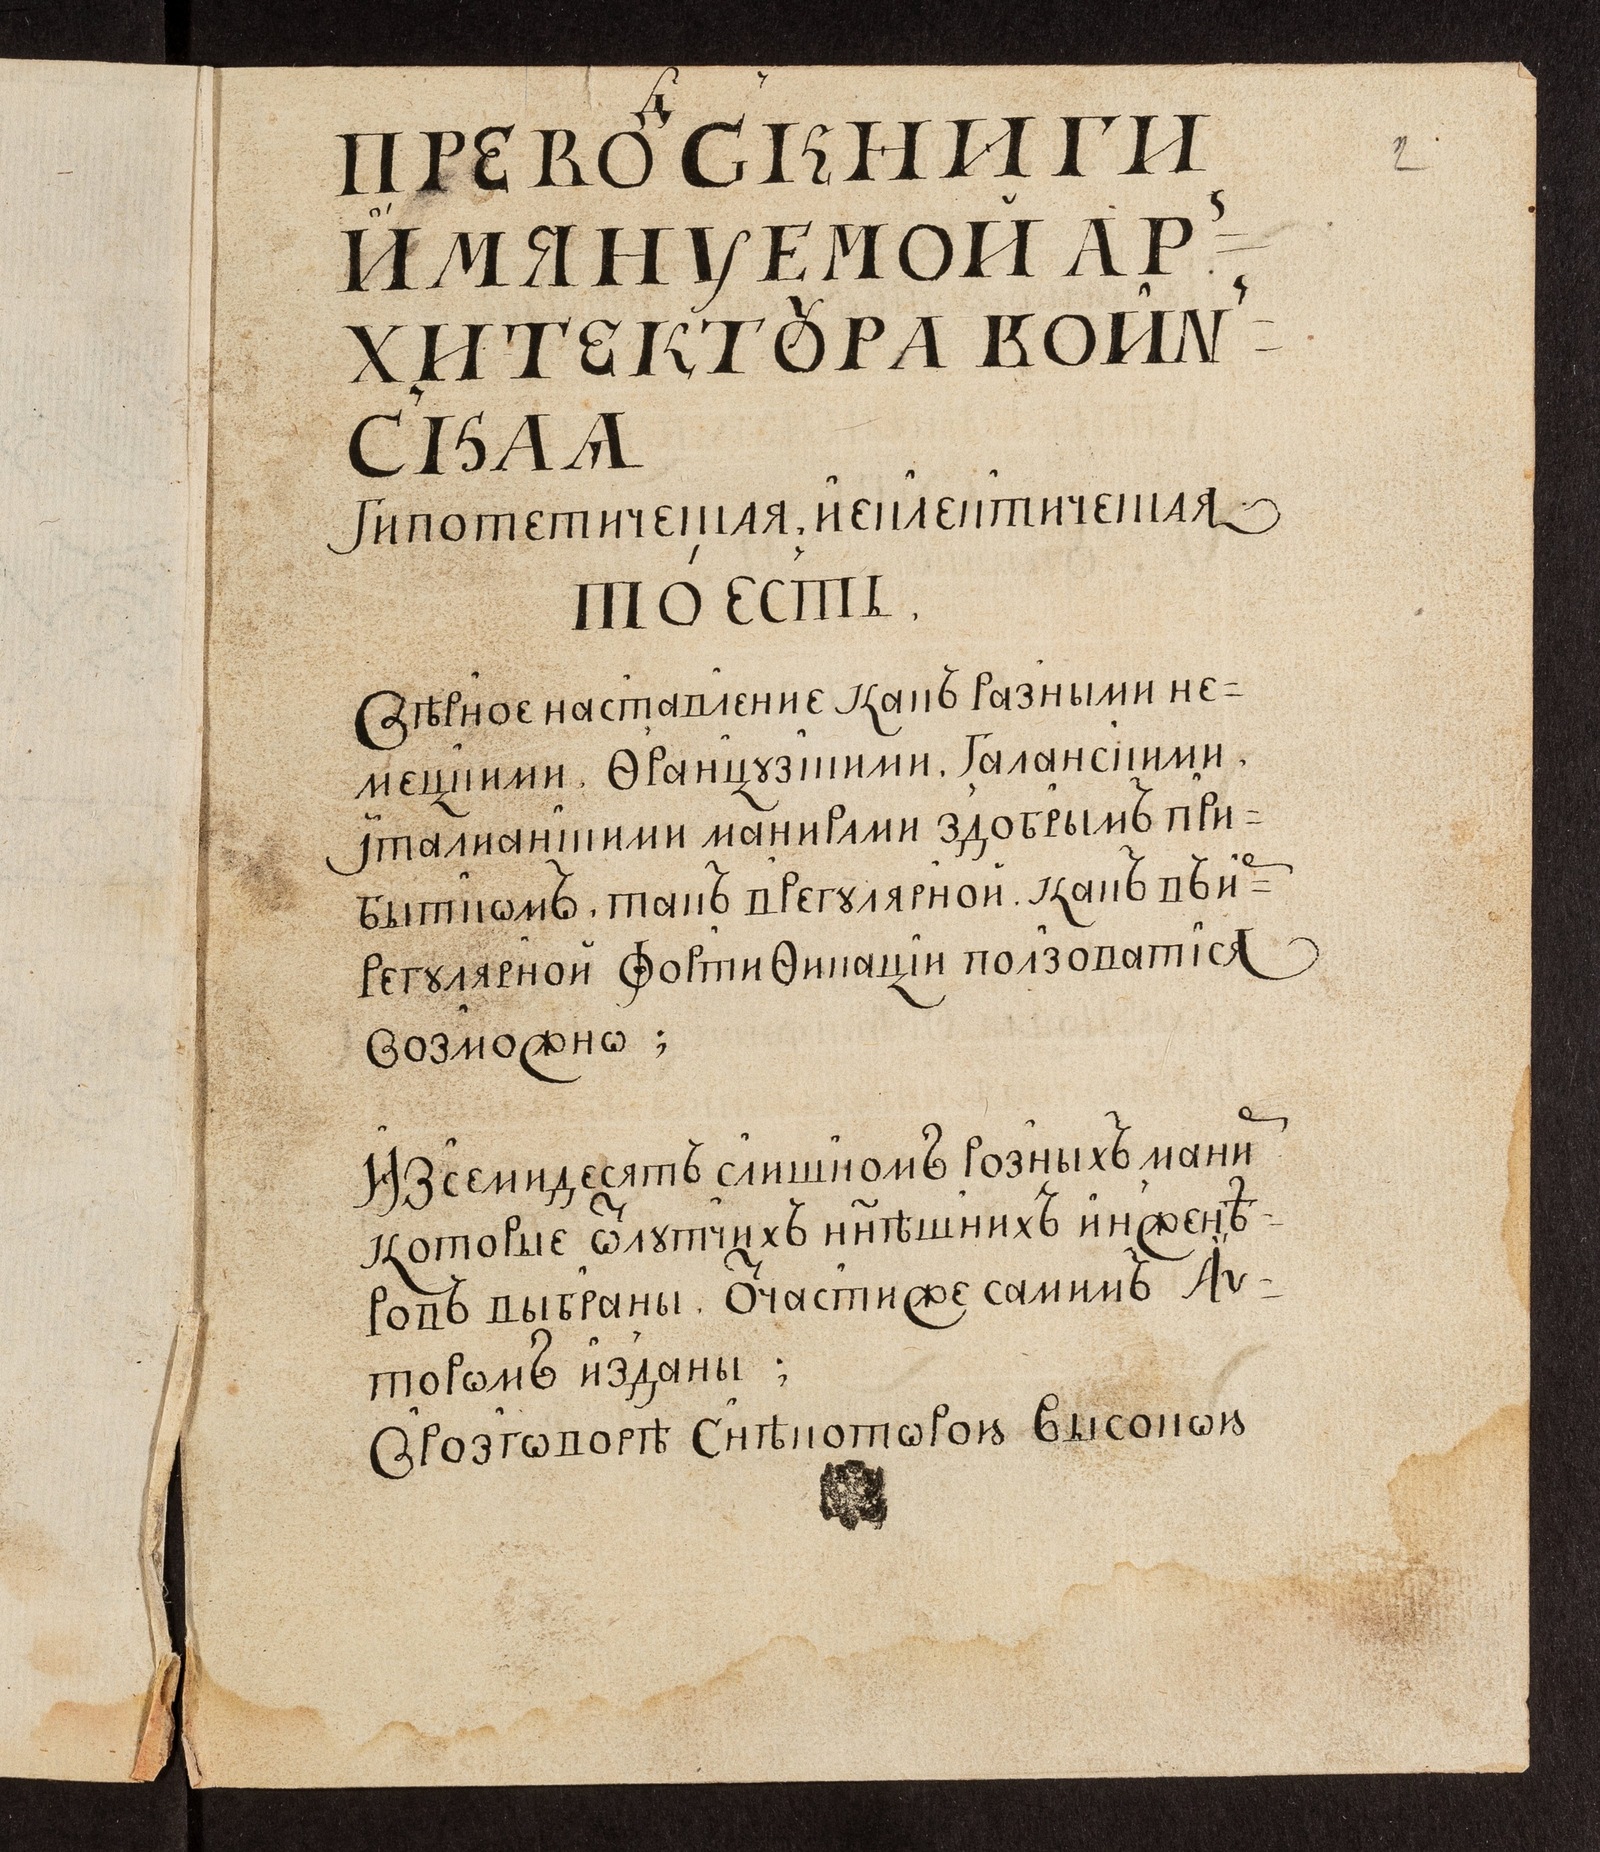 2
ПРЕВОд С КНИГИ
ИМЯНУЕМОЙ АР=
ХИТЕКТꙋРА ВОИН=
СКАѦ
Гипотетическая, и еклектическая
то есть.
Вѣрное наставление какъ разными не=
мецкими. Ѳранцꙋзскими. Галанскими.
Италианскими манирами здобрымъ при=
быткѡмъ. такъ врегꙋлярной. какъ въ ире=
регꙋлярной ФортиѲикацiи ползоватися
возможнѡ ;
Изсемидесятъ слишкомъ розныхъ манир
которые ѿ лꙋтчихъ ннѣшнихъ инженѣ=
ровъ выбраны. Ѿчасти же самимъ Аѵ=
торѡмъ изданы ;
Врозгѡворѣ Снѣкотѡрою высокѡю